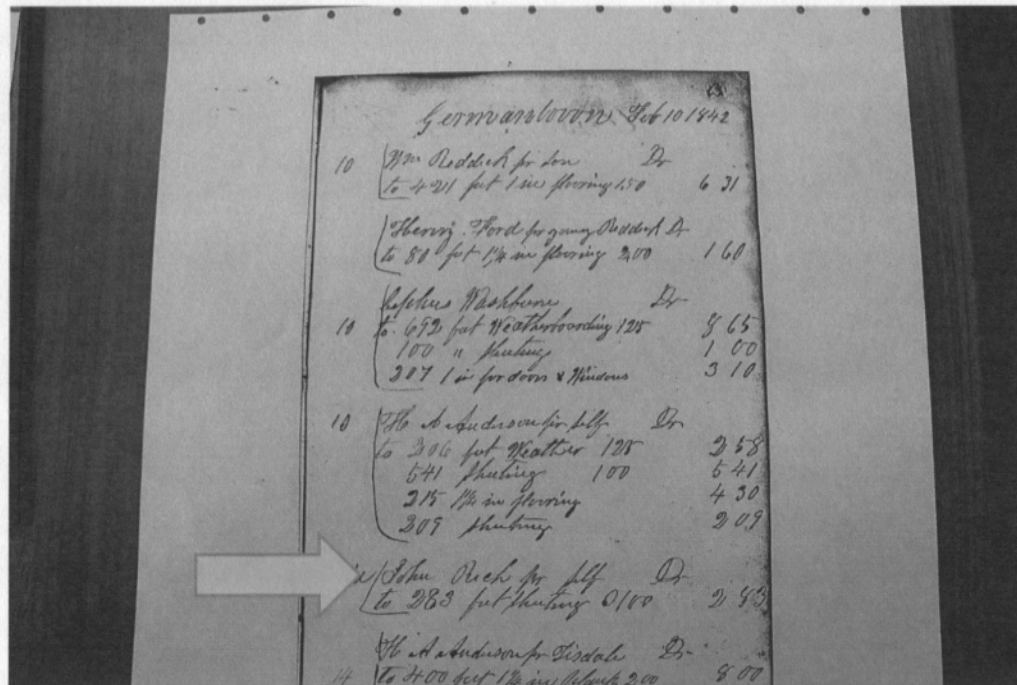 Germantown Feb 10 1842
10 Wm Reddick pr son Dr
to 421 feet 1 in flooring 150 6 31
Henry Ford pr young Reddick Dr
to 80 feet 1¼ in flooring 200 1 60
Washburne Dr
10 to 692 feet Weatherboarding 125 8 65
100 " sheeting 1 00
207 1 in for doors & Windows 3 10
10 H A Anderson pr self Dr
to 206 feet Weather 125 2 58
541 sheeting 100 5 41
215 1¼ in flooring 4 30
209 sheeting 2 09
John Rich pr self Dr
to 283 feet sheeting @100 2 83
H A Anderson pr Tisdale Dr
14 to 400 feet 1¼ in plank 200 8 00